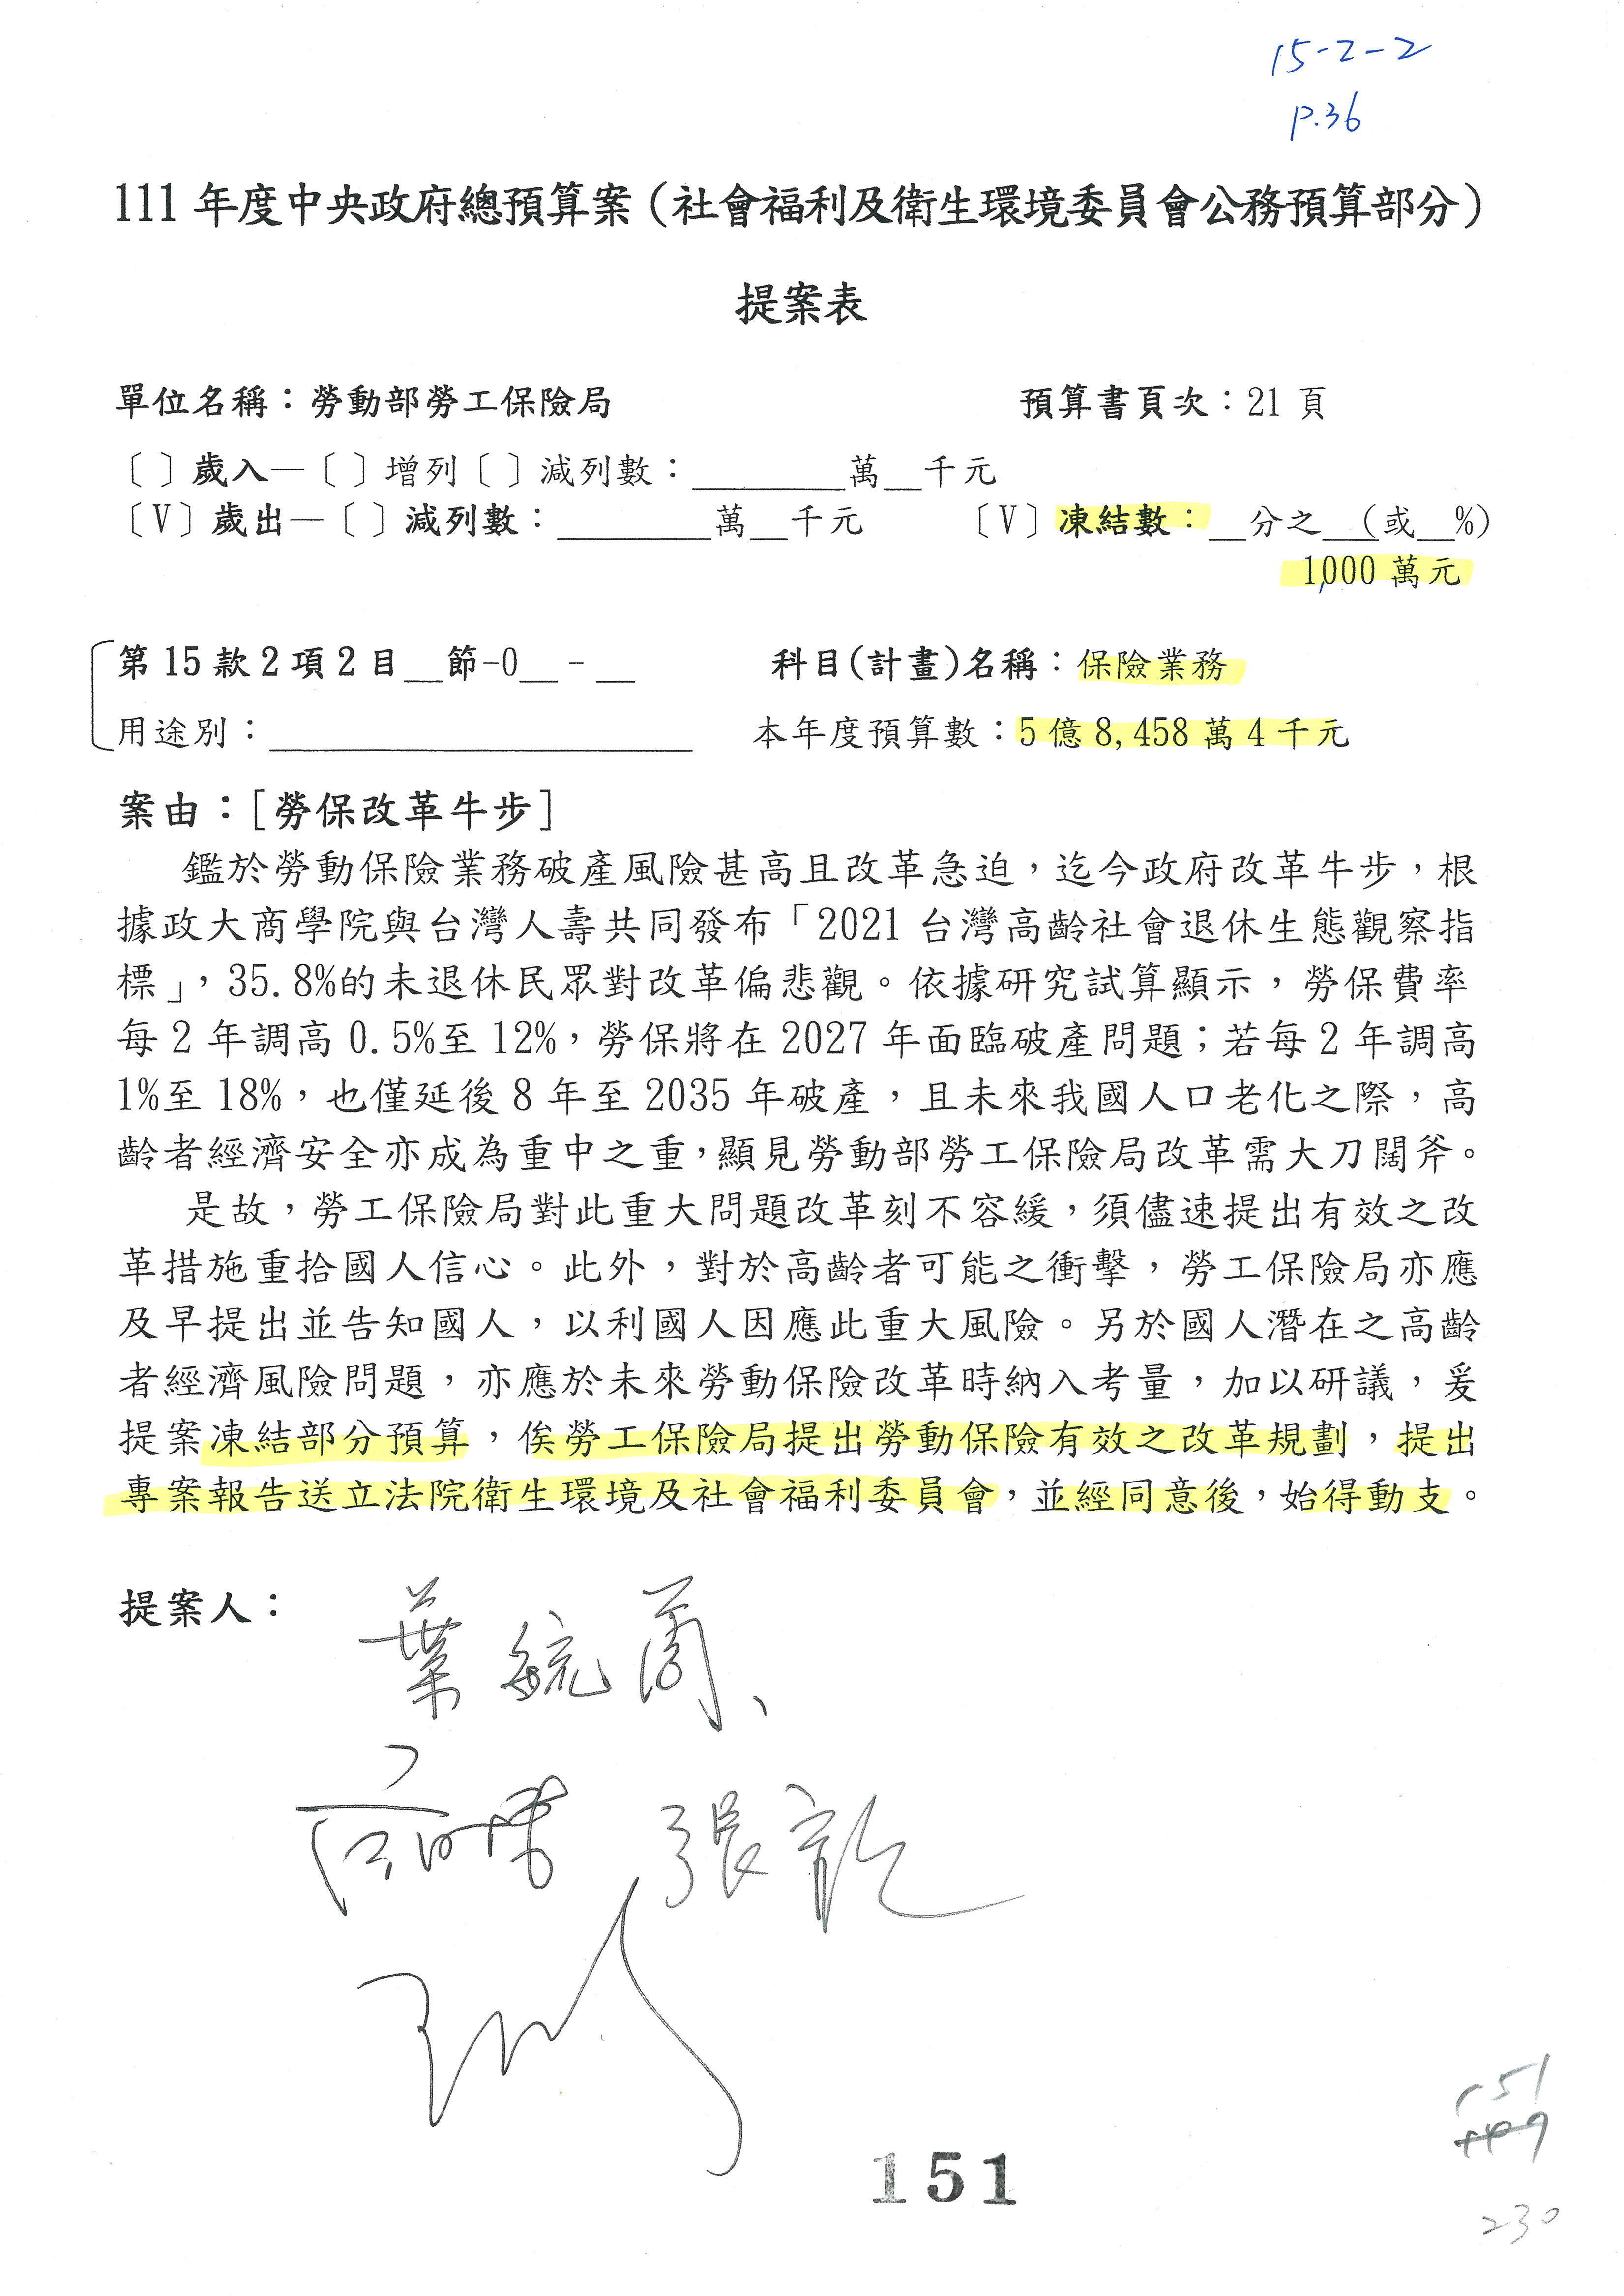 15-2-2
P.36
111 年度中央政府總預算案（社會福利及衛生環境委員會公務預算部分）
提案表
單位名稱：勞動部勞工保險局 預算書頁次：21 頁
〔 〕歲入—〔 〕增列〔 〕減列數：________萬__千元
〔V〕歲出—〔 〕減列數：________萬__千元 〔V〕凍結數：__分之__(或__%)
1,000 萬元
第 15 款 2 項 2 目__節-0__ -__ 科目(計畫)名稱：保險業務
用途別：____________________ 本年度預算數：5 億 8,458 萬 4 千元
案由：[勞保改革牛步]
鑑於勞動保險業務破產風險甚高且改革急迫，迄今政府改革牛步，根
據政大商學院與台灣人壽共同發布「2021 台灣高齡社會退休生態觀察指
標」，35.8%的未退休民眾對改革偏悲觀。依據研究試算顯示，勞保費率
每 2 年調高 0.5%至 12%，勞保將在 2027 年面臨破產問題；若每 2 年調高
1%至 18%，也僅延後 8 年至 2035 年破產，且未來我國人口老化之際，高
齡者經濟安全亦成為重中之重，顯見勞動部勞工保險局改革需大刀闊斧。
是故，勞工保險局對此重大問題改革刻不容緩，須儘速提出有效之改
革措施重拾國人信心。此外，對於高齡者可能之衝擊，勞工保險局亦應
及早提出並告知國人，以利國人因應此重大風險。另於國人潛在之高齡
者經濟風險問題，亦應於未來勞動保險改革時納入考量，加以研議，爰
提案凍結部分預算，俟勞工保險局提出勞動保險有效之改革規劃，提出
專案報告送立法院衛生環境及社會福利委員會，並經同意後，始得動支。
提案人：
葉毓蘭、
張
151
151
230